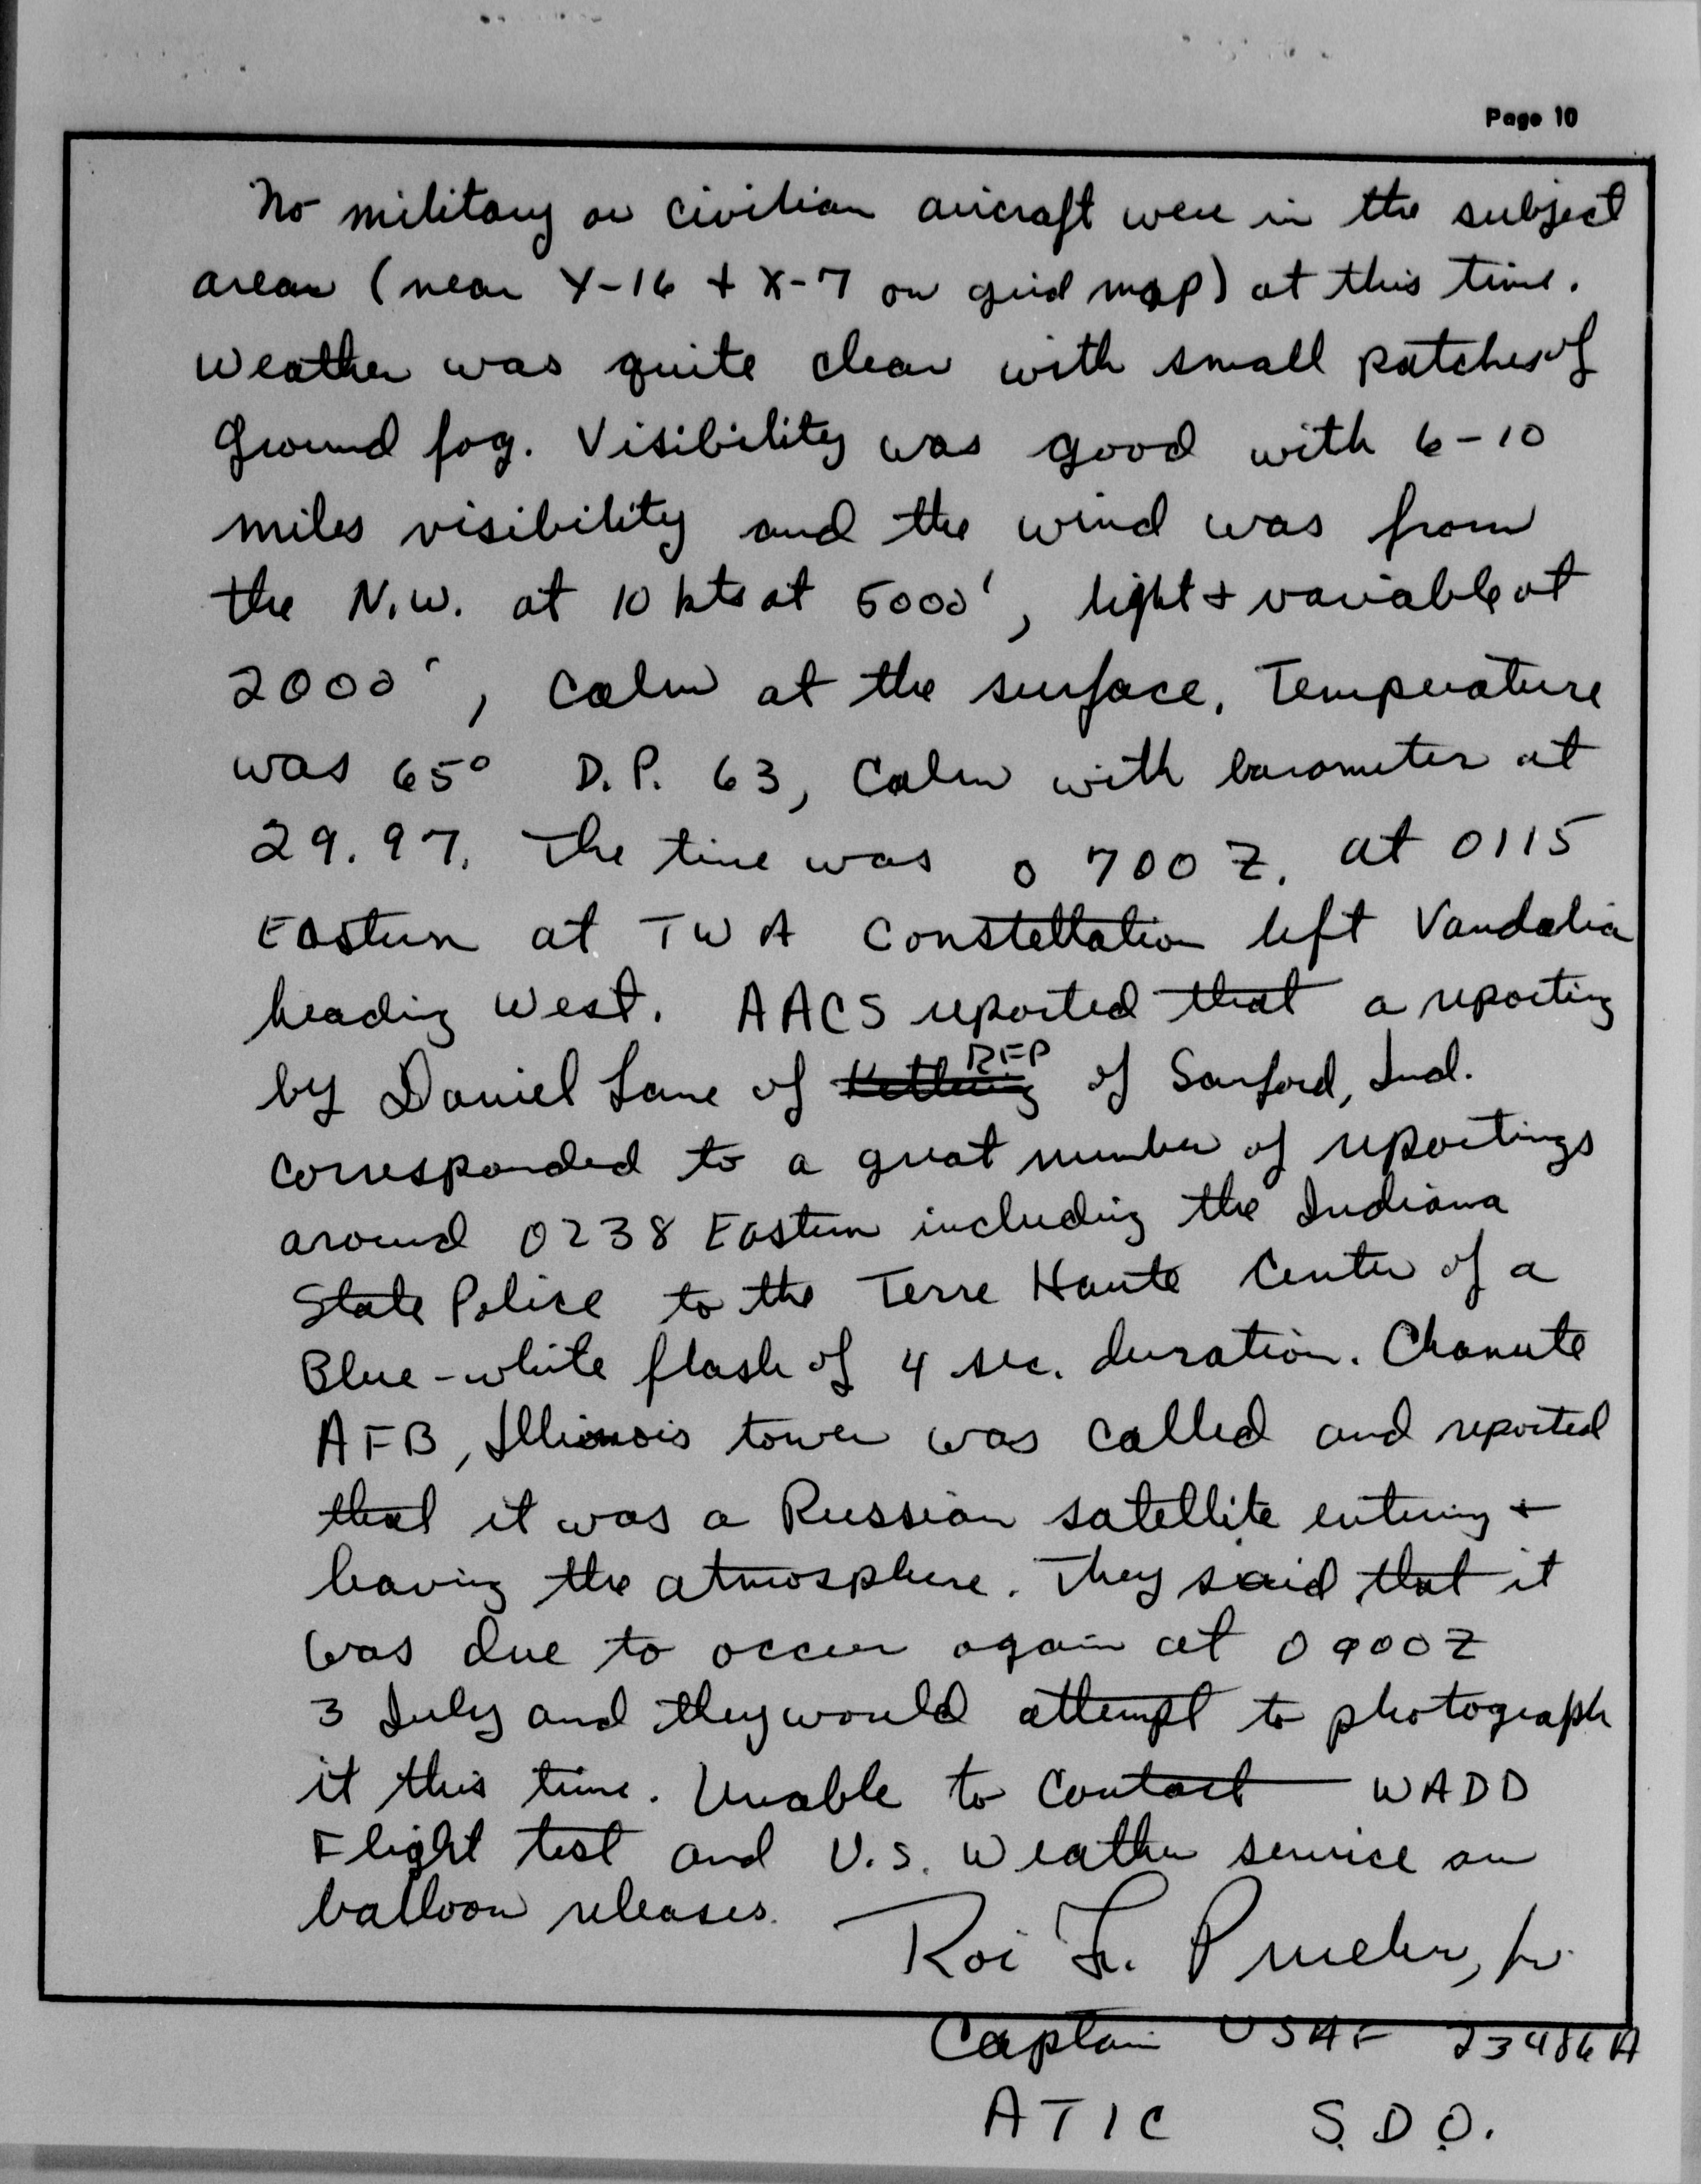 Page 10
No military or civilian aircraft were in the subject
area (near Y-16 + X-7 on grid map) at this time.
Weather was quite clear with small patches of
Ground fog. Visibility was good with 6-10
miles visibility and the wind was from
the N.W. at 10 kts at 5000', light + variable at
2000', Calm at the surface. Temperature
was 65° D.P. 63, Calm with barometer at
29.97. The time was 0700Z. at 0115
Eastern at TWA Constellation left Vandalia
heading West. AACS reported that a reporting
RFP
by Daniel Lane of of Sanford, Ind.
corresponded to a great number of reportings
around 0238 Eastern including the Indiana
State Police to the Terre Haute Center of a
Blue-white flash of 4 sec. duration. Chanute
AFB, Illinois tower was called and reported
that it was a Russian satellite entering +
leaving the atmosphere. They said that it
was due to occur again at 0900Z
3 July and they would attempt to photograph
it this time. Unable to Contact WADD
Flight test and U.S. Weather service on
balloon releases.
Roi F. Prueher, Jr.
Captain USAF 23486A
ATIC S.D.O.